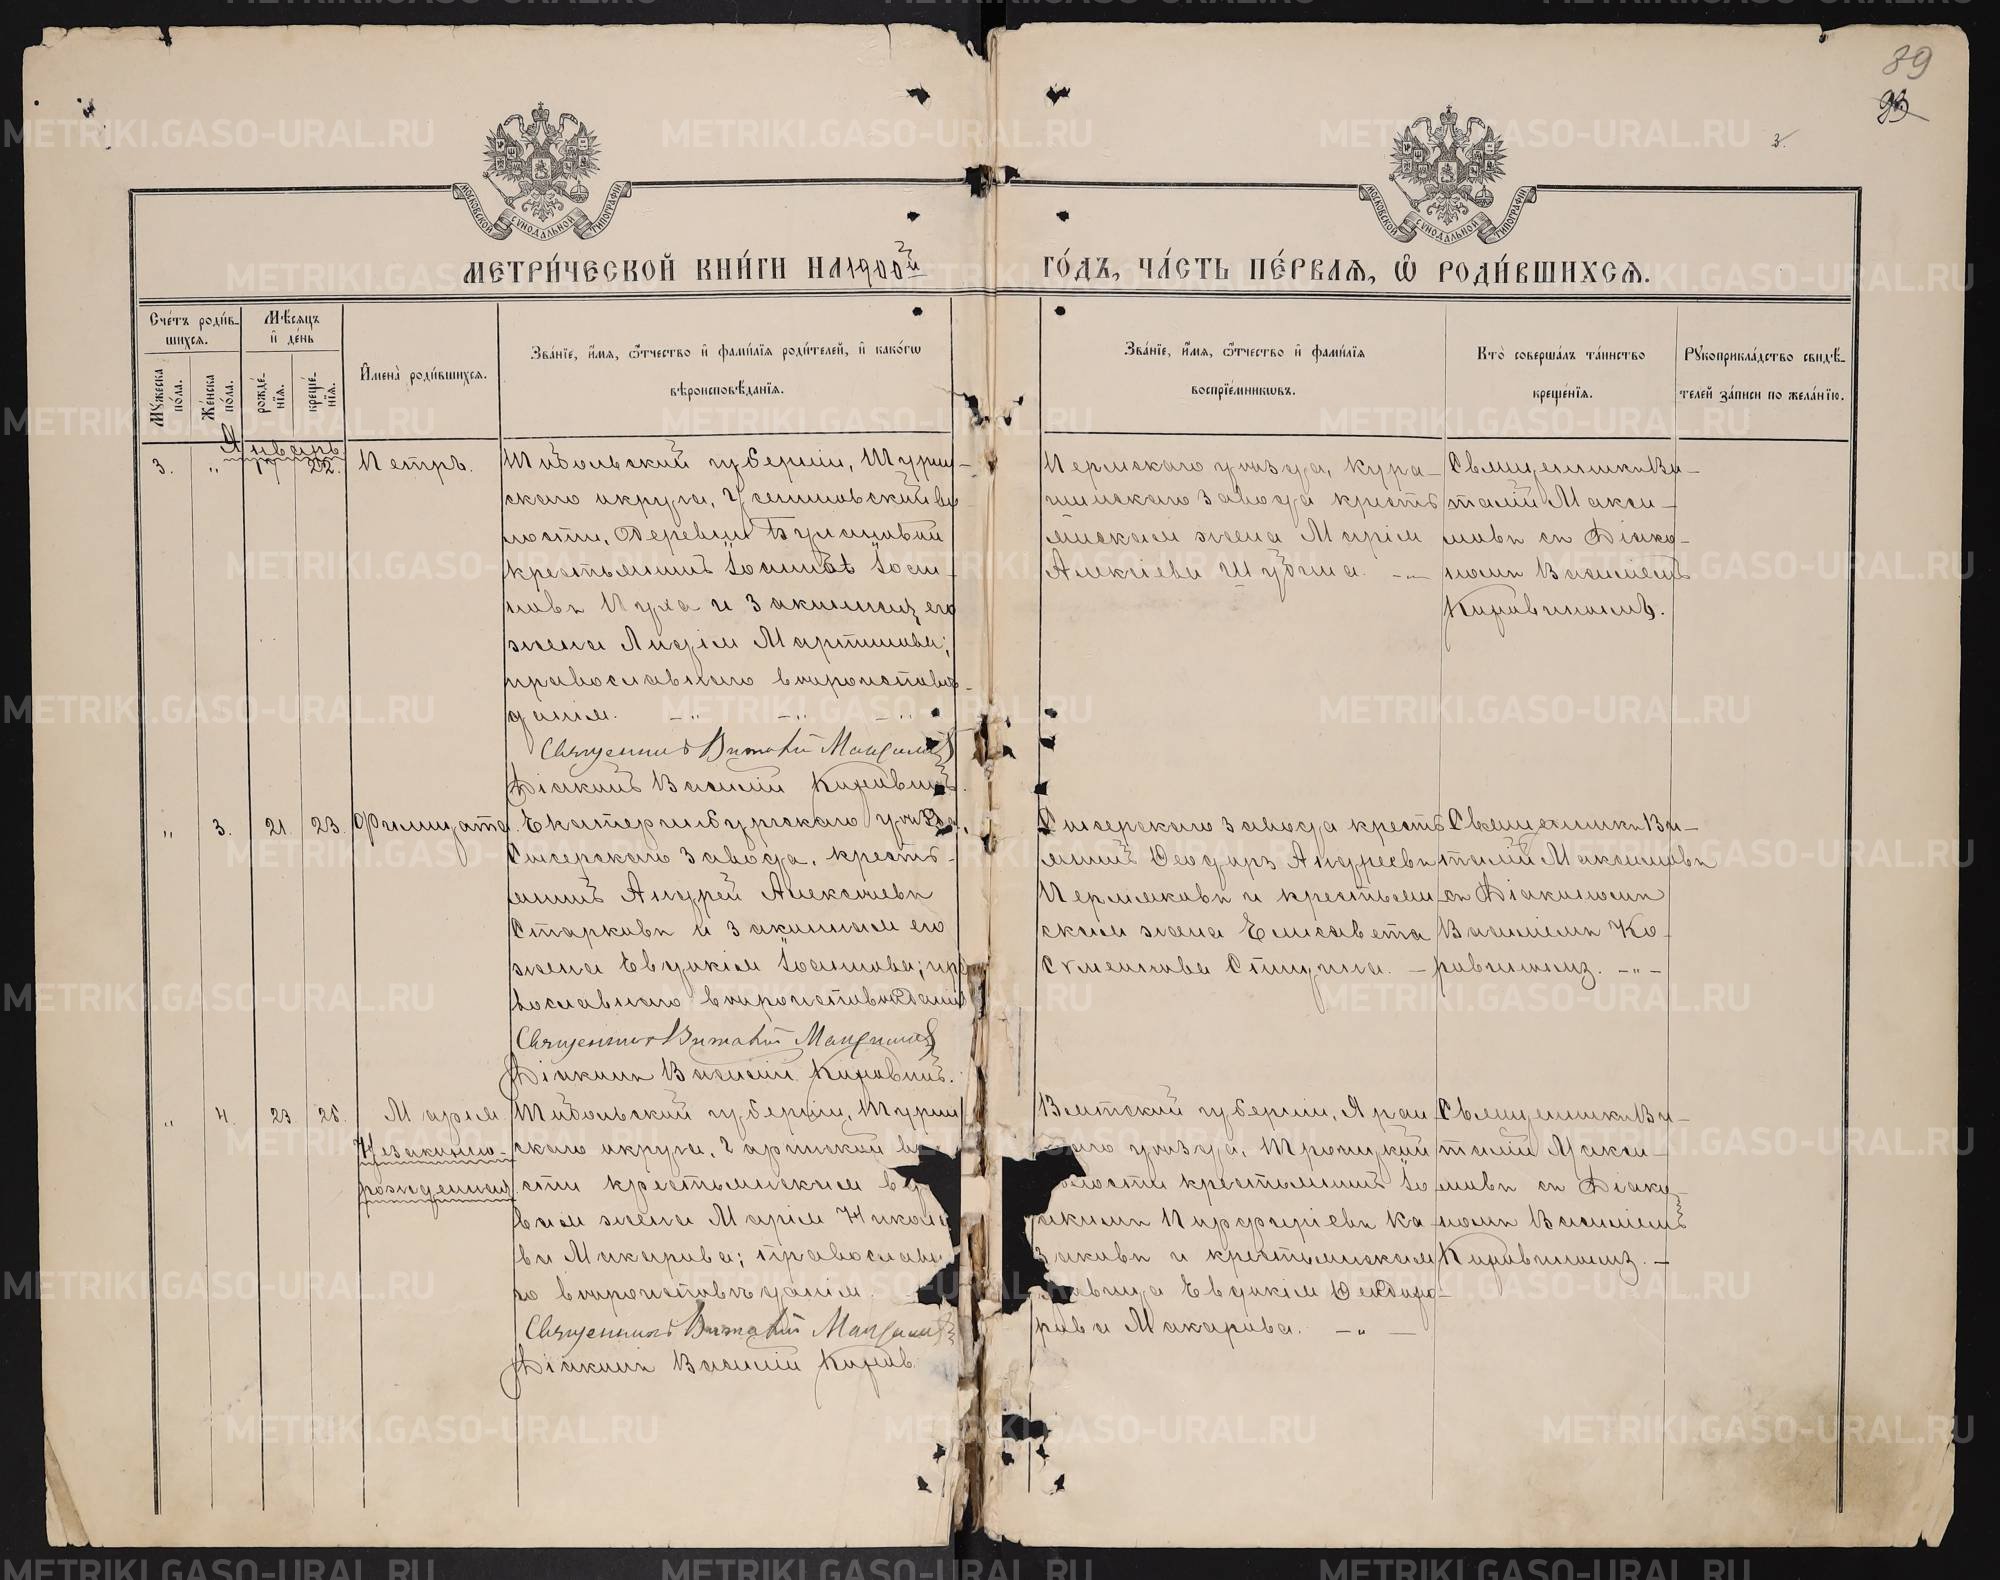 89
93
3.
МОСКОВСКОЙ СУНОДАЛЬНОЙ ТИПОГРАФІИ
МОСКОВСКОЙ СУНОДАЛЬНОЙ ТИПОГРАФІИ
МЕТРИ́ЧЕСКОЙ КНИ́ГИ НА 1900й ГО́ДЪ, ЧА́СТЬ ПЕ́РВАЯ, Ѡ РОДИ́ВШИХСЯ.
Сче́тъ роди́в-
шихся.
Му́жеска по́ла.
Же́нска по́ла.
Мѣ́сяцъ
и де́нь
рожде́нїя.
креще́нїя.
Имена̀ роди́вшихся.
Зва́нїе, и́мя, ѻ҆́тчество и фами́лїя роди́телей, и како́гѡ
вѣроисповѣ́данїя.
Зва́нїе, и́мя, ѻ҆́тчество и фами́лїя
воспрїе́мникѡвъ.
Кто̀ соверша́лъ та́инство
креще́нїя.
Рꙋкоприкла́дство свидѣ́-
телей за́писи по жела́нїю.
Январь
3. „ 17 22. Петръ.
Тобольской губерніи, Турин-
скаго округа,
лости, Деревни
крестьянинъ Іоаннъ Іоан-
новъ Пуха и законная его
жена Лидія Мартинова;
православнаго вѣроисповѣ-
данія.
Священникъ Виталій Максимовъ
Діаконъ Василій Коровинъ.
Пермскаго уѣзда, Кура-
шимскаго завода кресть
янская жена Марія
Алексіева Шубина.
Священникъ Ви-
талій Макси-
мовъ съ Діако-
номъ Василіемъ
Коровинымъ.
„ 3. 21. 23. Филицата.
Екатеринбургскаго уѣзда,
Сысерскаго завода, кресть-
янинъ Андрей Алексіевъ
Старковъ и законная его
жена Евдокія Іоаннова; пра
вославнаго вѣроисповѣданія
Священникъ Виталій Максимовъ
Діаконъ Василій Коровинъ.
Сысерскаго завода кресть
янинъ Ѳеодоръ Андреевъ
Пермяковъ и крестьян
ская жена Елисавета
Сѵмеонова Спицына.
Священникъ Ви-
талій Максимовъ
съ Діакономъ
Василіемъ Ко-
ровинымъ.
„ 4. 23. 25. Марія
Незаконно-
рожденная.
Тобольской губерніи, Турин
скаго округа, во
сти крестьянская в
вая жена Марія Никола
ва Макарова; православна
го вѣроисповѣданія.
Священникъ Виталій Максимовъ
Діаконъ Василій Коров
Вятской губерніи, Яран
скаго уѣзда, Троицкой
волости крестьянинъ Іо
акимъ Порфиріевъ Ка-
заковъ и крестьянская
дѣвица Евдокія Ѳеодоро-
рова Макарова.
Священникъ Ви-
талій Макси-
мовъ съ Діако-
номъ Василіемъ
Коровинымъ.